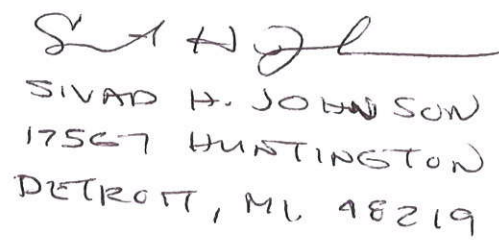 SIVAD H. JOHNSON
17567 HUNTINGTON
DETROIT, MI. 48219